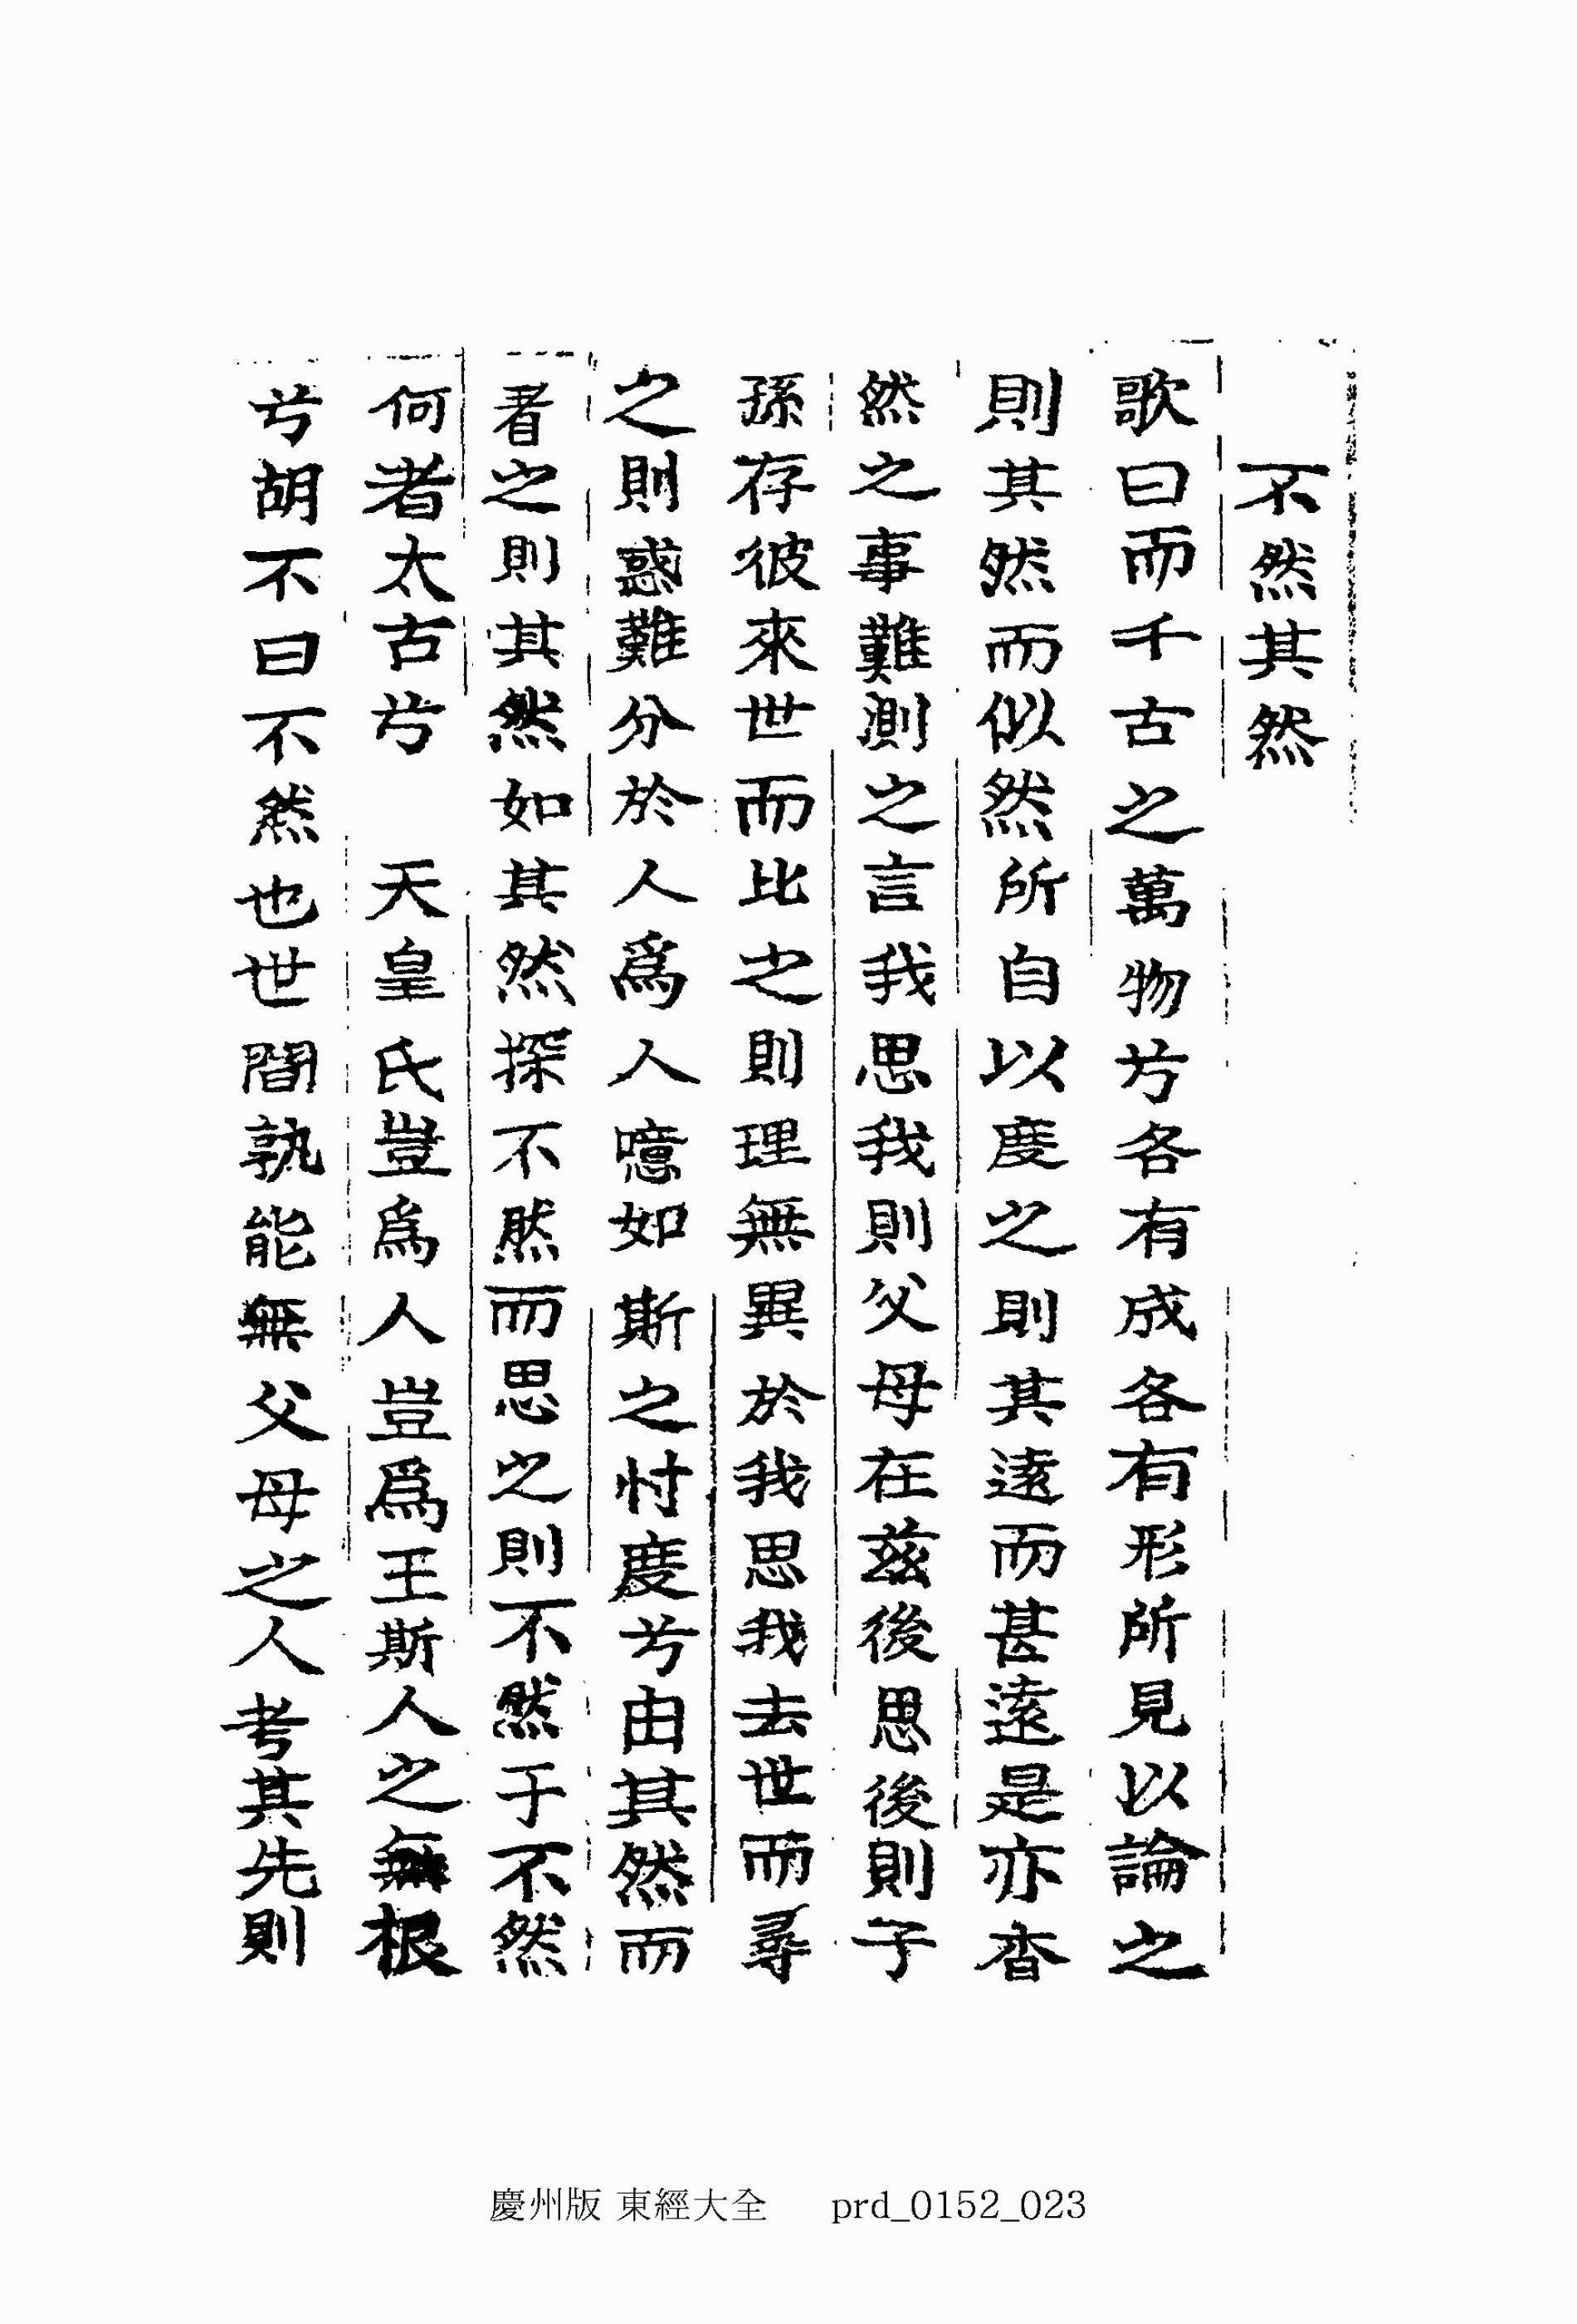 不然其然
歌曰而千古之萬物兮各有成各有形所見以論之
則其然而似然所自以度之則其遠而甚遠是亦杳
然之事難測之言我思我則父母在玆後思後則子
孫存彼來世而比之則理無異於我思我去世而尋
之則惑難分於人爲人噫如斯之忖度兮由其然而
看之則其然如其然探不然而思之則不然于不然
何者太古兮 天皇氏豈爲人豈爲王斯人之無根
兮胡不曰不然也世間孰能無父母之人考其先則
慶州版 東經大全 prd_0152_023